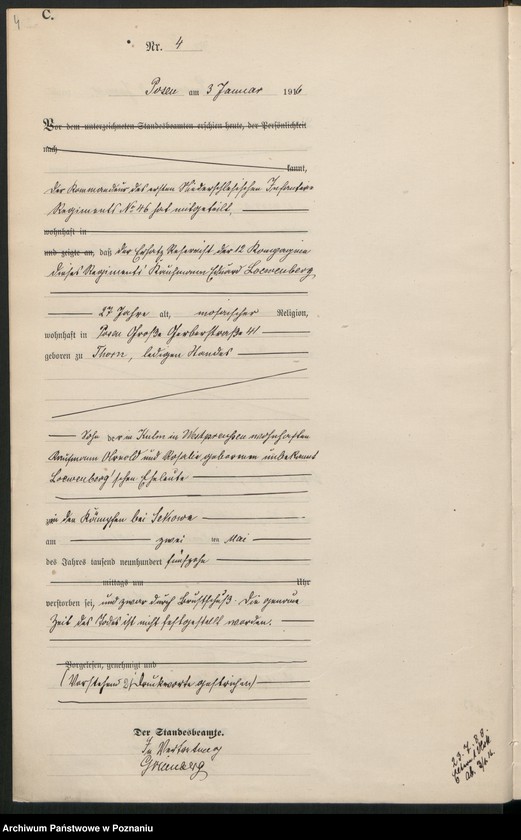 4
C.
Nr. 4
Posen am 3 Januar 1916
Vor dem unterzeichneten Standesbeamten erschien heute, der Persönlichkeit
nach
kannt,
Der Kommandeur des ersten Niederschlesischen Infanterie
Regiments No 46 hat mitgeteilt,
wohnhaft in
und zeigte an, daß der Ersatz Reservist der 12 Kompagnie
dieses Regiments Kaufmann Eduard Loewenberg
27 Jahre alt, mosaischer Religion,
wohnhaft in Posen Große Gerberstraße 41
geboren zu Thorn, ledigen Standes
Sohn der in Kulm in Westpreussen wohnhaften
Kaufmann und Rosalie geborenen unbekannt
Loewenberg'schen Eheleute
in den Kämpfen bei
am zwei ten Mai
des Jahres tausend neunhundert fünfzehn
mittags um Uhr
verstorben sei, und zwar durch Brustschuß. Die genaue
Zeit des Todes ist nicht festgestellt worden.
Vorgelesen, genehmigt und
(Vorstehend Druckworte gestrichen)
Der Standesbeamte.
In Vertretung
Grünberg
Archiwum Państwowe w Poznaniu